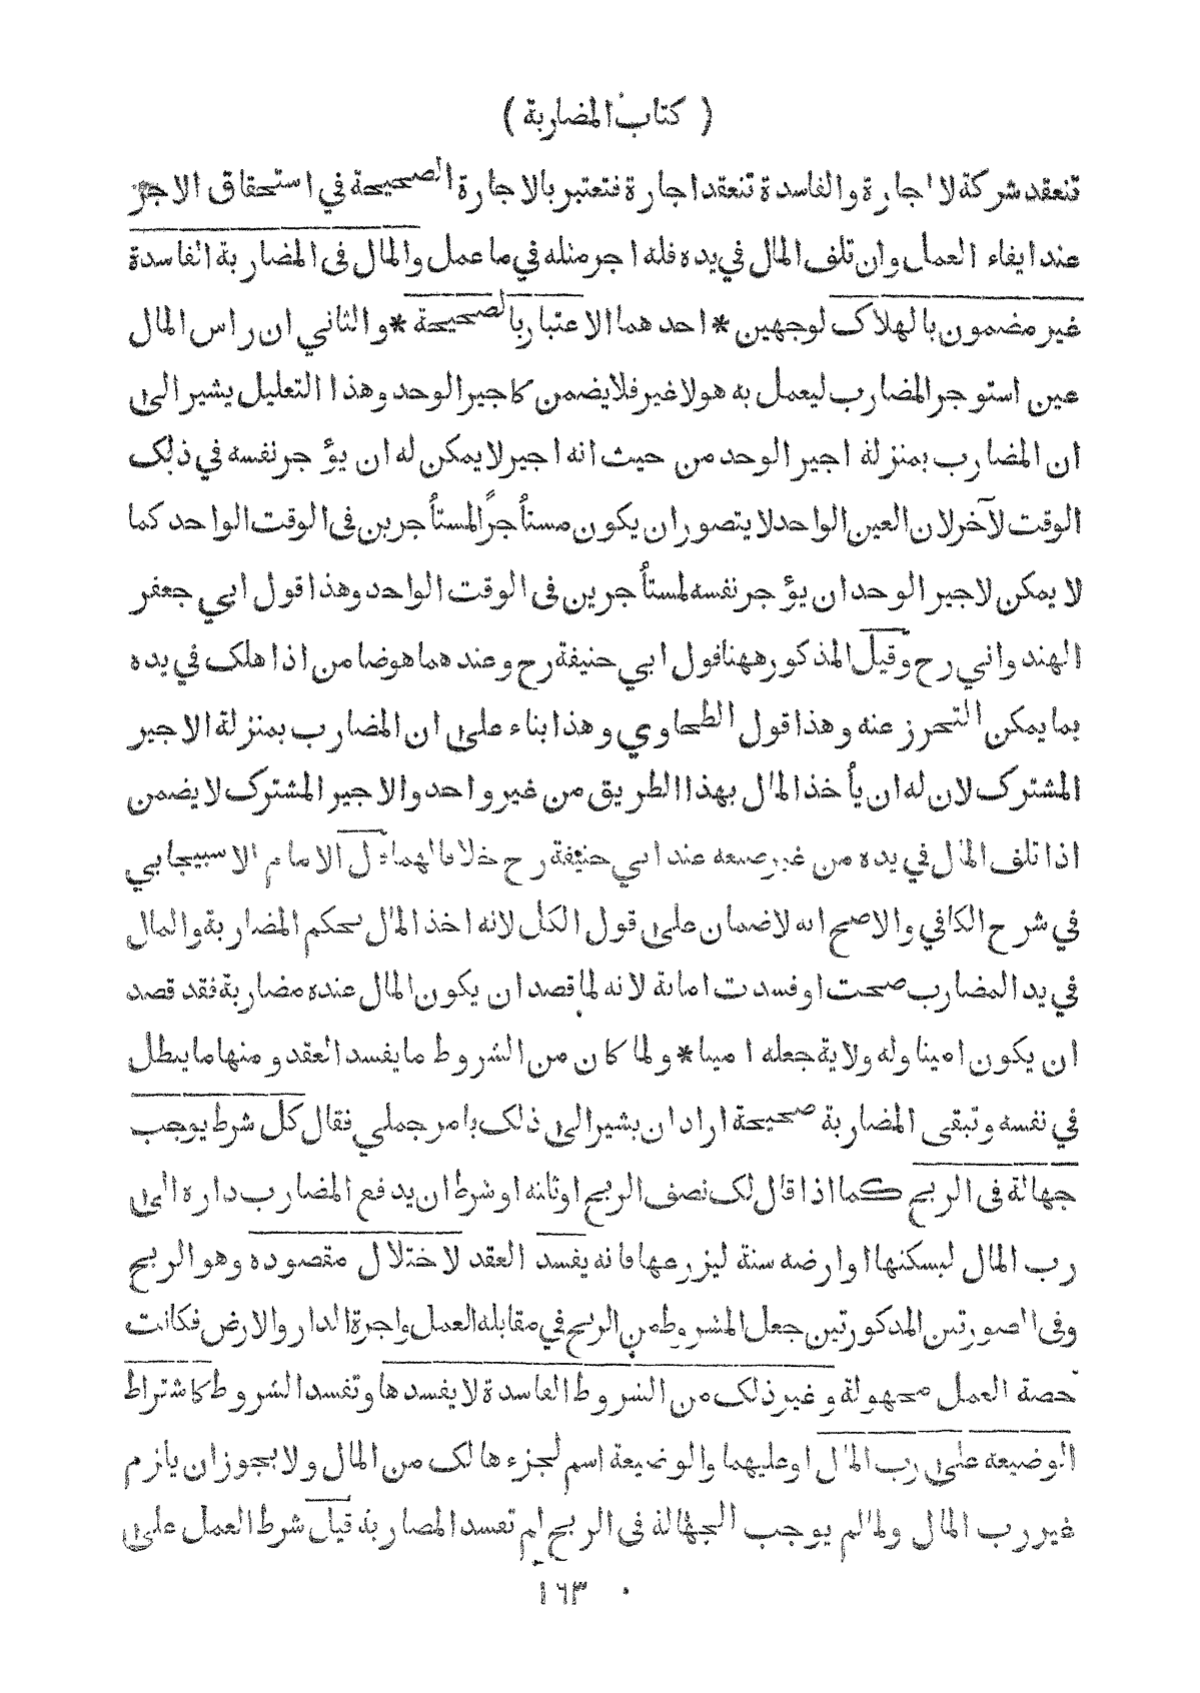 ( كتاب المضاربة )
تنعقد شركة لا اجارة والفاسدة تنعقد اجارة فتعتبر بالاجارة الصحيحة في استحقاق الاجر
عند ايفاء العمل وان تلف المال في يده فله اجر مثله في ما عمل والمال فى المضاربة الفاسدة
غير مضمون بالهلاك لوجهين * احدهما الاعتبار بالصحيحة * والثاني ان راس المال
عين استوجر المضارب ليعمل به هو لا غير فلا يضمن كاجير الوحد وهذا التعليل يشير الى
ان المضارب بمنزلة اجير الوحد من حيث انه اجير لا يمكن له ان يؤجر نفسه في ذلك
الوقت لآخر لان العين الواحد لا يتصور ان يكون مستأجرًا لمستأجرين فى الوقت الواحد كما
لا يمكن لاجير الوحد ان يؤجر نفسه لمستأجرين فى الوقت الواحد وهذا قول ابي جعفر
الهندواني رح وقيل المذكور ههنا قول ابي حنيفة رح وعندهما هو ضامن اذا هلك في يده
بما يمكن التحرز عنه وهذا قول الطحاوي وهذا بناء على ان المضارب بمنزلة الاجير
المشترك لان له ان يأخذ المال بهذا الطريق من غير واحد والاجير المشترك لا يضمن
اذا تلف المال في يده من غير صنعه عند ابي حنيفة رح خلافا لهما قال الامام الاسبيجابي
في شرح الكافي والاصح انه لا ضمان على قول الكل لانه اخذ المال بحكم المضاربة والمال
في يد المضارب صحت او فسدت امانة لانه لما قصد ان يكون المال عنده مضاربة فقد قصد
ان يكون امينا وله ولاية جعله امينا * ولما كان من الشروط ما يفسد العقد ومنها ما يبطل
في نفسه وتبقى المضاربة صحيحة اراد ان يشير الى ذلك بامر جملي فقال كل شرط يوجب
جهالة فى الربح كما اذا قال لك نصف الربح او ثلثه او شرط ان يدفع المضارب داره الى
رب المال ليسكنها او ارضه سنة ليزرعها فانه يفسد العقد لاختلال مقصوده وهو الربح
وفى الصورتين المذكورتين جعل المشروط من الربح في مقابلة العمل واجرة الدار والارض فكانت
حصة العمل مجهولة وغير ذلك من الشروط الفاسدة لا يفسدها وتفسد الشروط كاشتراط
الوضيعة على رب المال او عليهما والوضيعة اسم لجزء هالك من المال ولا يجوز ان يلزم
غير رب المال ولما لم يوجب الجهالة فى الربح لم تفسد المضاربة قيل شرط العمل على
١٦٣